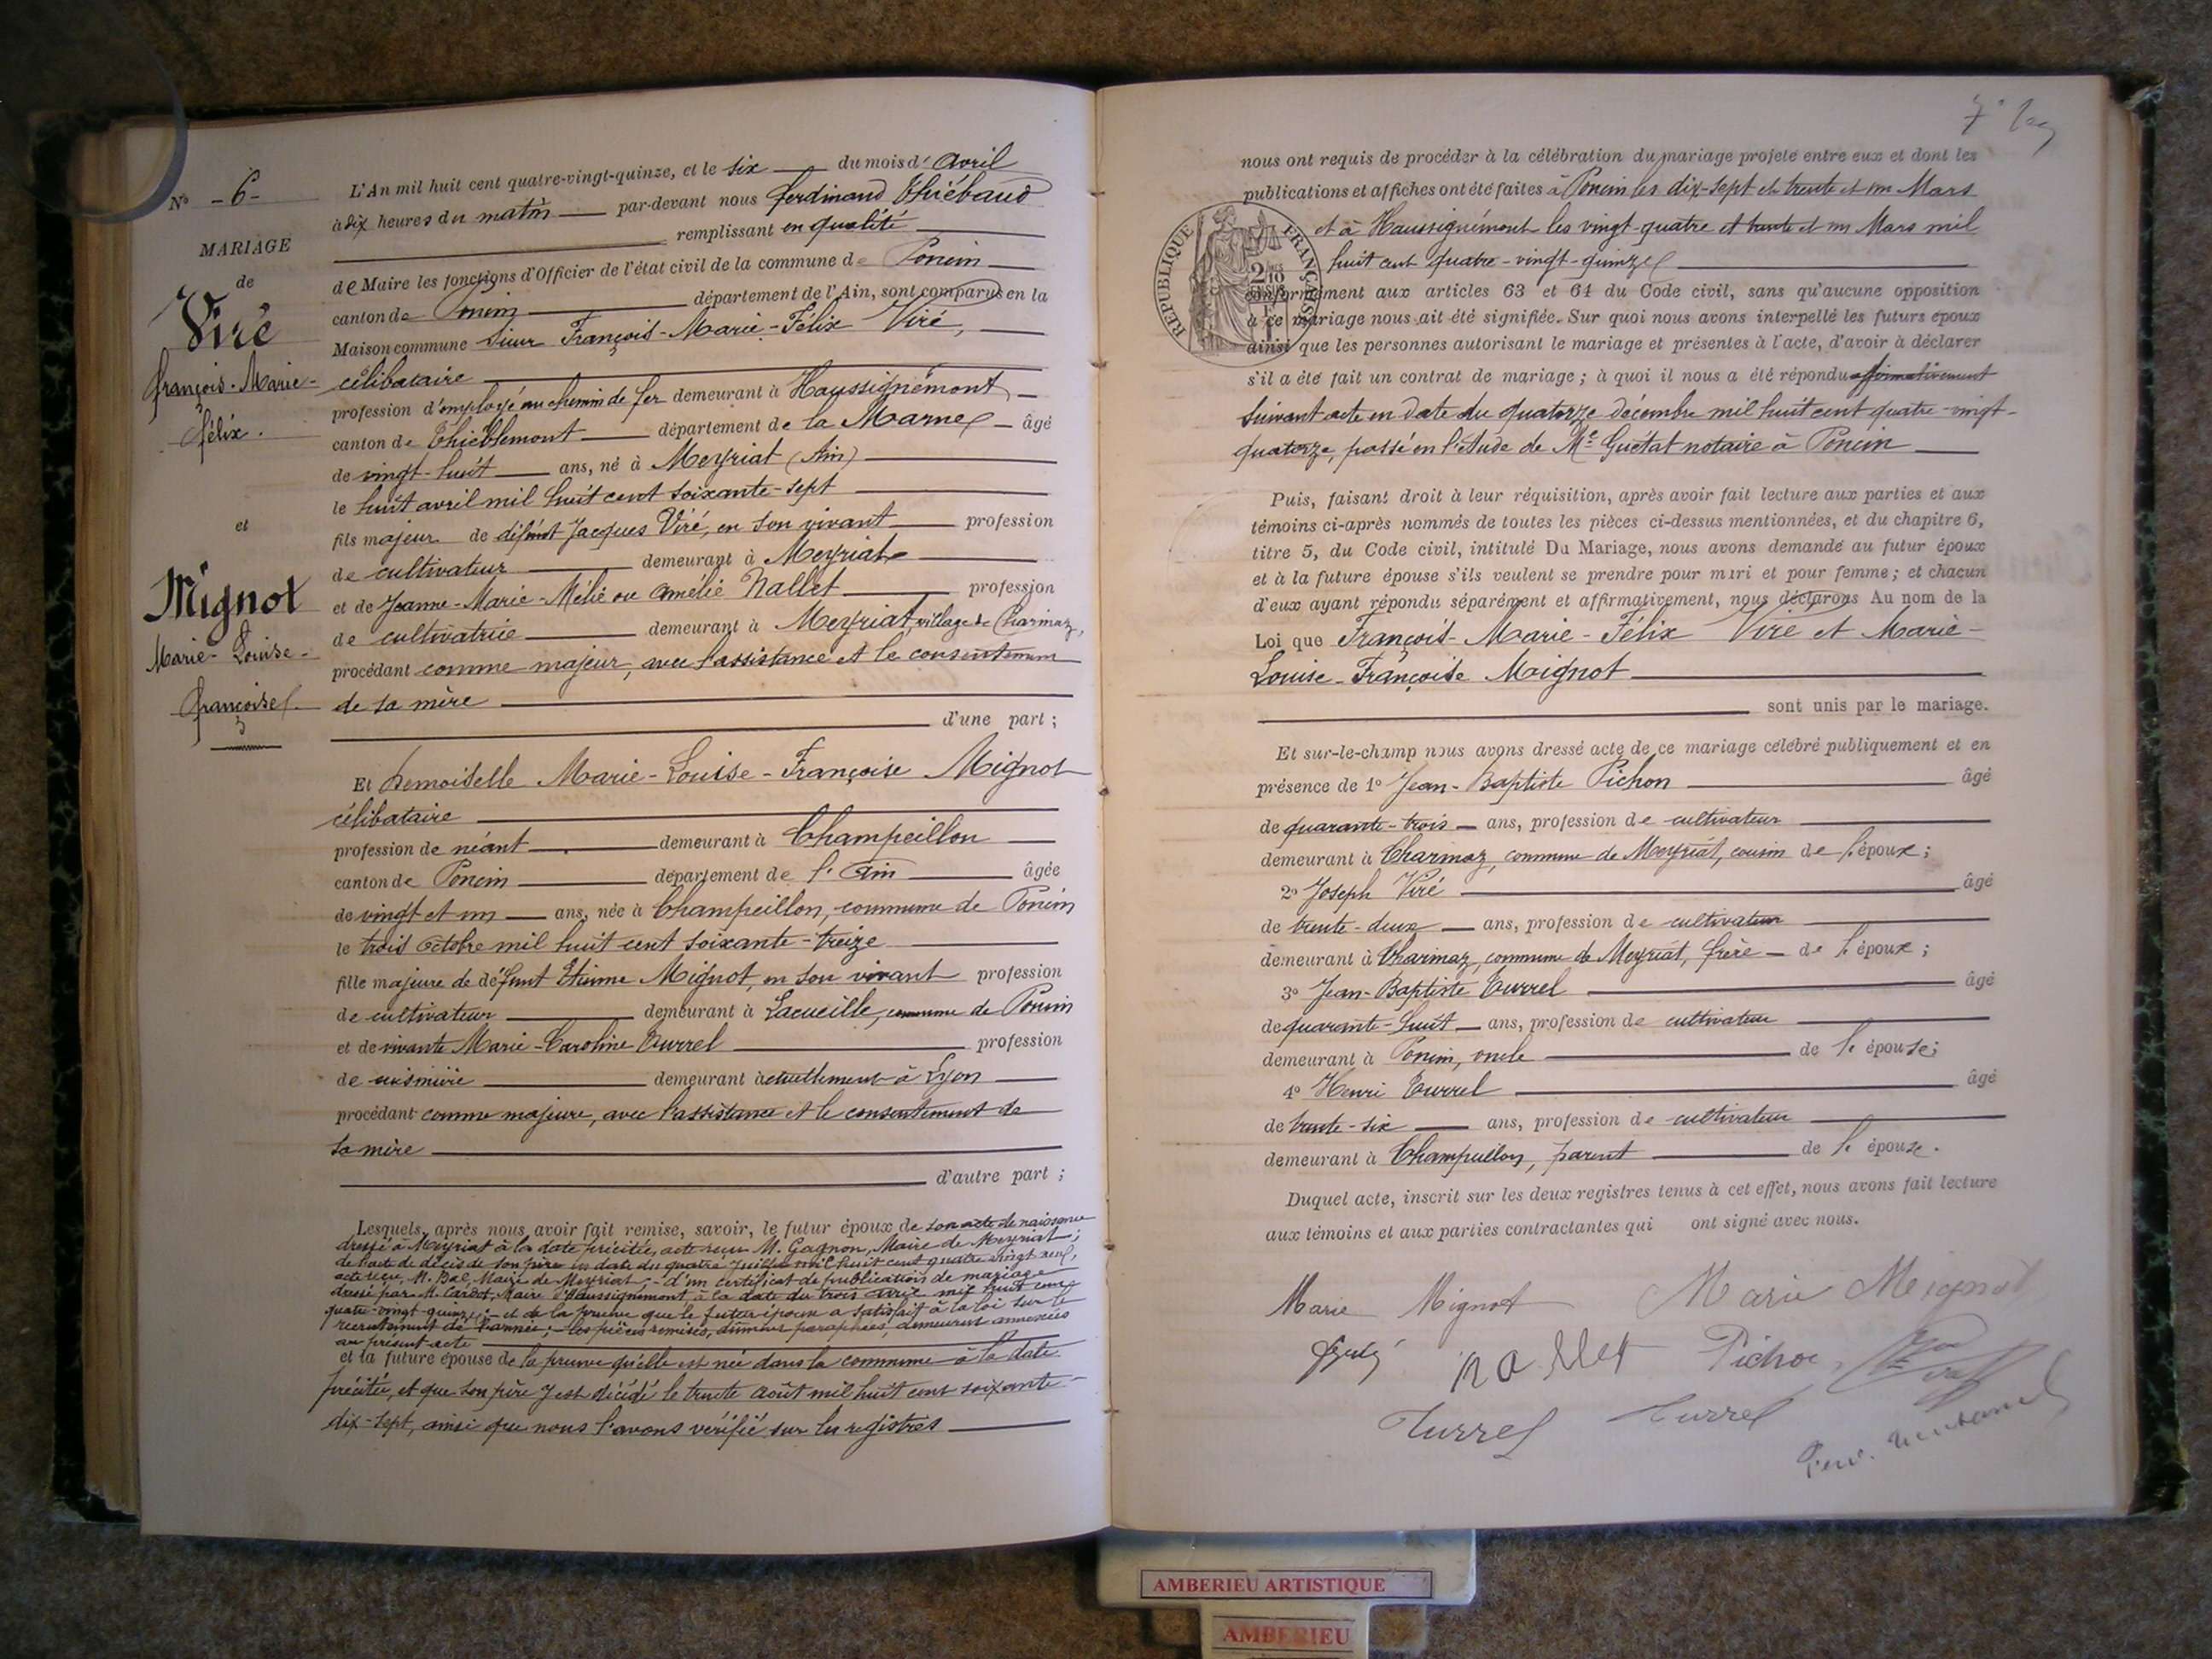 N° - 6 -
MARIAGE
de
Viré
François-Marie-
Félix.
et
Mignot
Marie-Louise-
Françoise
L'An mil huit cent quatre-vingt-quinze, et le six du mois d'Avril
à dix heures du matin par-devant nous Ferdinand Thiébaud
remplissant en qualité
de Maire les fonctions d'Officier de l'état civil de la commune de Poncin
canton de Poncin département de l'Ain, sont comparus en la
Maison commune Sieur François-Marie-Félix Viré,
célibataire
profession d'employé au chemin de fer demeurant à Haussignémont
canton de Thiéblemont département de la Marne âgé
de vingt-huit ans, né à Meyriat (Ain)
le huit avril mil huit cent soixante-sept
fils majeur de défunt Jacques Viré, en son vivant profession
de cultivateur demeurant à Meyriat
et de Jeanne-Marie-Mélie ou Amélie Nallet profession
de cultivatrice demeurant à Meyriat, village de Charmaz,
procédant comme majeur, avec l'assistance et le consentement
de sa mère
d'une part ;
Et Demoiselle Marie-Louise-Françoise Mignot
célibataire
profession de néant demeurant à Champeillon
canton de Poncin département de l'Ain âgée
de vingt et un ans, née à Champeillon, commune de Poncin
le trois Octobre mil huit cent soixante-treize
fille majeure de défunt Etienne Mignot, en son vivant profession
de cultivateur demeurant à Lacueille, commune de Poncin
et de vivante Marie-Caroline Turrel profession
de cuisinière demeurant actuellement à Lyon
procédant comme majeure, avec l'assistance et le consentement de
sa mère
d'autre part ;
Lesquels, après nous avoir fait remise, savoir, le futur époux de son acte de naissance
dressé à Meyriat à la date précitée, acte reçu M. Gagnon, Maire de Meyriat ;
de l'acte de décès de son père en date du quatre Juillet mil huit cent quatre vingt neuf,
acte reçu, M. Bal, Maire de Meyriat ; - d'un certificat de publications de mariage
dressé par M. Cardot, Maire d'Haussignémont à la date du trois avril mil huit cent
quatre-vingt-quinze ; - et de la preuve que le futur époux a satisfait à la loi sur le
recrutement de l'armée ; - les pièces remises, dûment paraphées, demeurent annexées
au présent acte
et la future épouse de la preuve qu'elle est née dans la commune à la date
précitée, et que son père y est décédé le trente août mil huit cent soixante-
dix-sept, ainsi que nous l'avons vérifié sur les registres
nous ont requis de procéder à la célébration du mariage projeté entre eux et dont les
publications et affiches ont été faites à Poncin les dix-sept et trente et un Mars
et à Haussignémont les vingt-quatre et trente et un Mars mil
huit cent quatre-vingt-quinze
conformément aux articles 63 et 64 du Code civil, sans qu'aucune opposition
à ce mariage nous ait été signifiée. Sur quoi nous avons interpellé les futurs époux
ainsi que les personnes autorisant le mariage et présentes à l'acte, d'avoir à déclarer
s'il a été fait un contrat de mariage ; à quoi il nous a été répondu affirmativement
suivant acte en date du quatorze décembre mil huit cent quatre-vingt-
quatorze, passé en l'étude de Me Guétat notaire à Poncin
RÉPUBLIQUE FRANÇAISE
Puis, faisant droit à leur réquisition, après avoir fait lecture aux parties et aux
témoins ci-après nommés de toutes les pièces ci-dessus mentionnées, et du chapitre 6,
titre 5, du Code civil, intitulé Du Mariage, nous avons demandé au futur époux
et à la future épouse s'ils veulent se prendre pour mari et pour femme ; et chacun
d'eux ayant répondu séparément et affirmativement, nous déclarons Au nom de la
Loi que François-Marie-Félix Viré et Marie-
Louise-Françoise Mignot
sont unis par le mariage.
Et sur-le-champ nous avons dressé acte de ce mariage célébré publiquement et en
présence de 1° Jean-Baptiste Pichon âgé
de quarante-trois ans, profession de cultivateur
demeurant à Charmaz, commune de Meyriat, cousin de l'époux ;
2° Joseph Viré âgé
de trente-deux ans, profession de cultivateur
demeurant à Charmaz, commune de Meyriat, frère de l'époux ;
3° Jean-Baptiste Turrel âgé
de quarante-huit ans, profession de cultivateur
demeurant à Poncin, oncle de l'épouse ;
4° Henri Turrel âgé
de trente-six ans, profession de cultivateur
demeurant à Champeillon, parent de l'épouse.
Duquel acte, inscrit sur les deux registres tenus à cet effet, nous avons fait lecture
aux témoins et aux parties contractantes qui ont signé avec nous.
Marie Mignot Marie Meignot
nallet Pichon
Turrel Turrel
AMBERIEU ARTISTIQUE
AMBERIEU